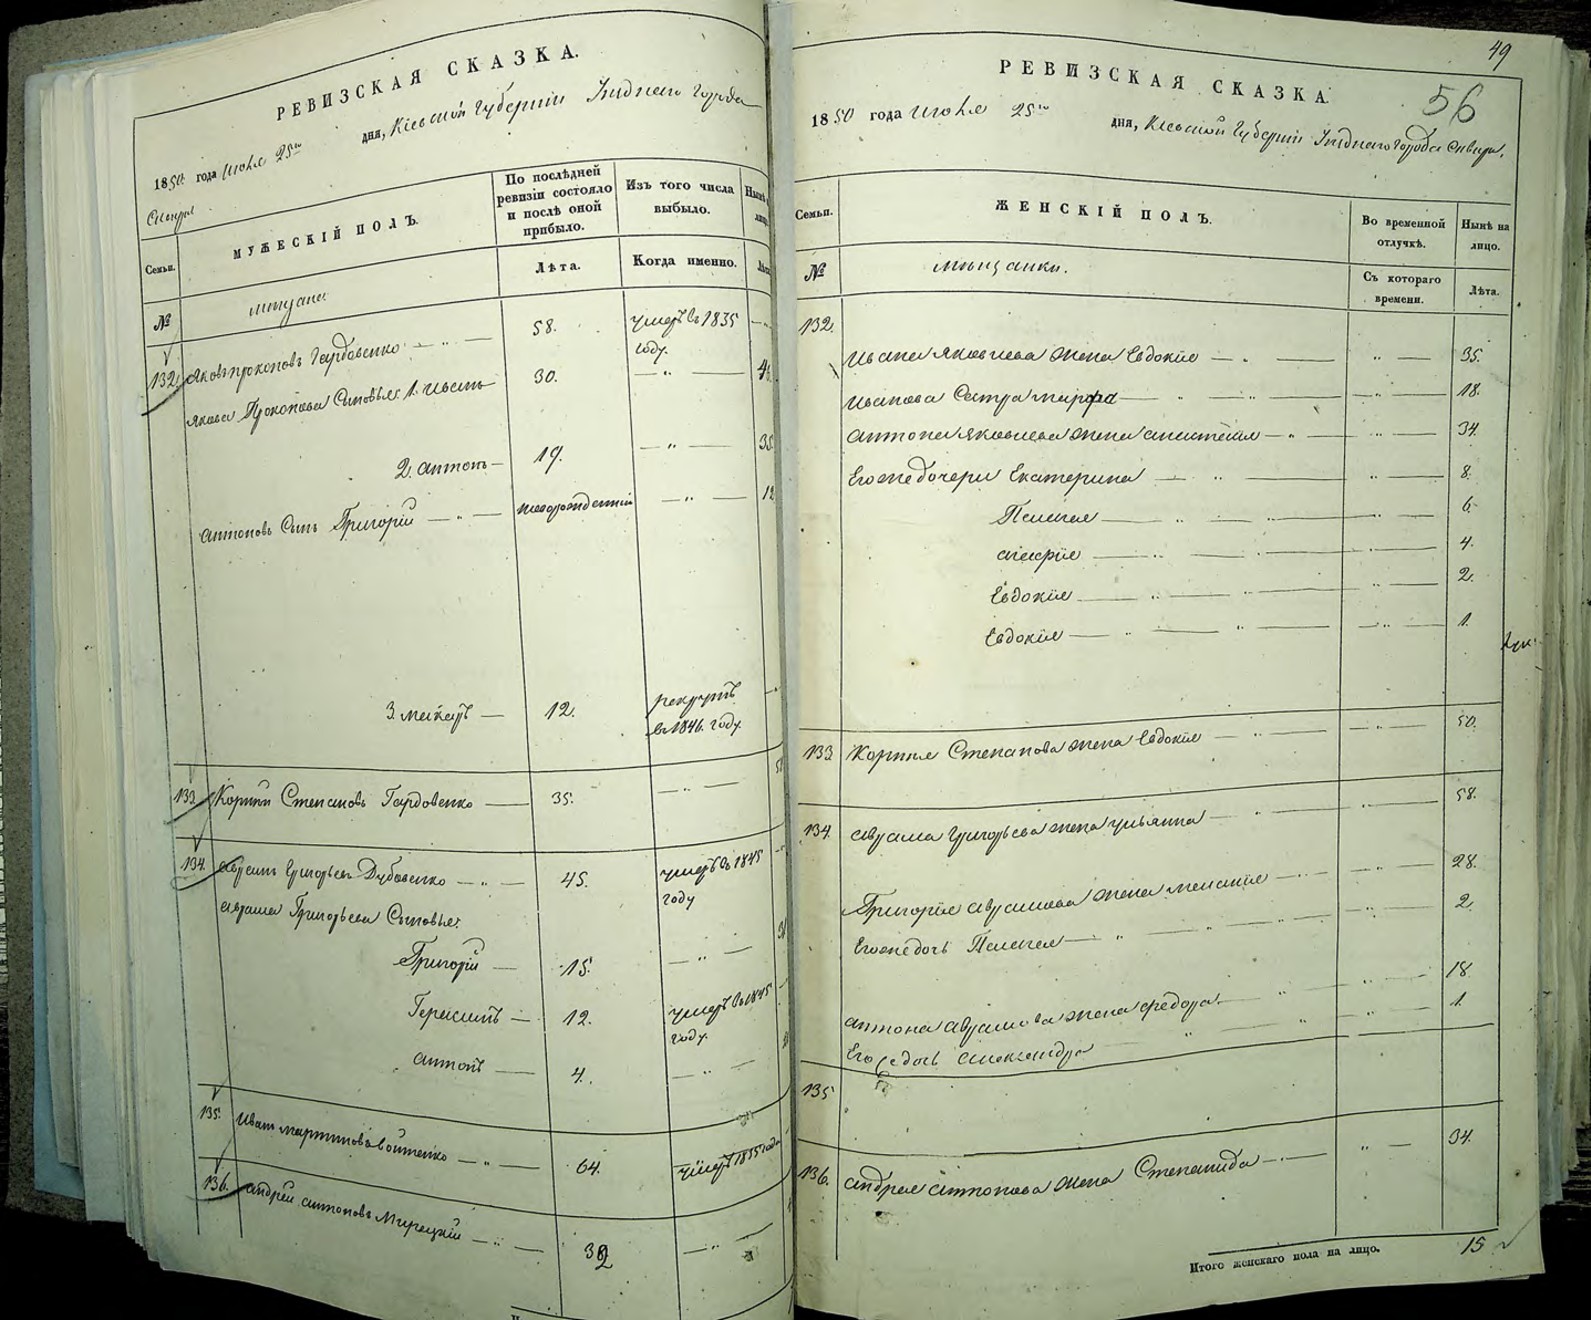 РЕВИЗСКАЯ СКАЗКА.
1850 года июля 25го дня, Кіевской Губерніи Уѣзднаго Города
Сквиры
Семьи.
МУЖЕСКІЙ ПОЛЪ.
По послѣдней ревизіи состояло и послѣ оной прибыло.
Изъ того числа выбыло.
Нынѣ
лицо
№
мѣщане
Лѣта.
Когда именно.
132. Яковъ Прокоповъ Гардовенко — 58. умеръ въ 1835 году.
Якова Прокопова Сыновья: 1. Иванъ 30.
2. Антонъ — 19. 35
Антоновъ Сынъ Григорій — новорожденный 12
3. Макаръ — 12. рекрутъ въ 1846. году.
133. Корнѣй Степановъ Гардовенко — 35.
134. Аврамъ Григорьевъ Дубовенко — 45. умеръ въ 1845 году
Аврама Григорьева Сыновья:
Григорій — 15.
Герасимъ — 12. умеръ въ 1845 году.
Антонъ — 4.
135. Иванъ Мартиновъ Войтенко — 64. умеръ 1835 года
136. Андрей Антоновъ — 32
49
РЕВИЗСКАЯ СКАЗКА.
56
1850 года июля 25го дня, Кіевской Губерніи Уѣзднаго Города Сквиры.
Семьи.
ЖЕНСКІЙ ПОЛЪ.
Во временной отлучкѣ.
Нынѣ на лицо.
№
мѣщанки.
Съ котораго времени.
Лѣта.
132.
Ивана Яковлева жена Евдокія — 35.
Иванова Сестра Марфа — 18.
Антона Яковлева жена Анастасія — 34.
Его же дочери Екатерина — 8.
Пелагея — 6.
Агафія — 4.
Евдокія — 2.
Евдокія — 1.
133. Корнѣя Степанова жена Евдокія — 50.
134. Аврама Григорьева жена Ульянна — 58.
Григорія Аврамова жена Меланія — 28.
Его же дочь Пелагея — 2.
Антона Аврамова жена Федора — 18.
Его же дочь Александра 1.
135
136. Андрея Антонова жена Степанида — 34.
Итого женскаго пола на лицо. 15